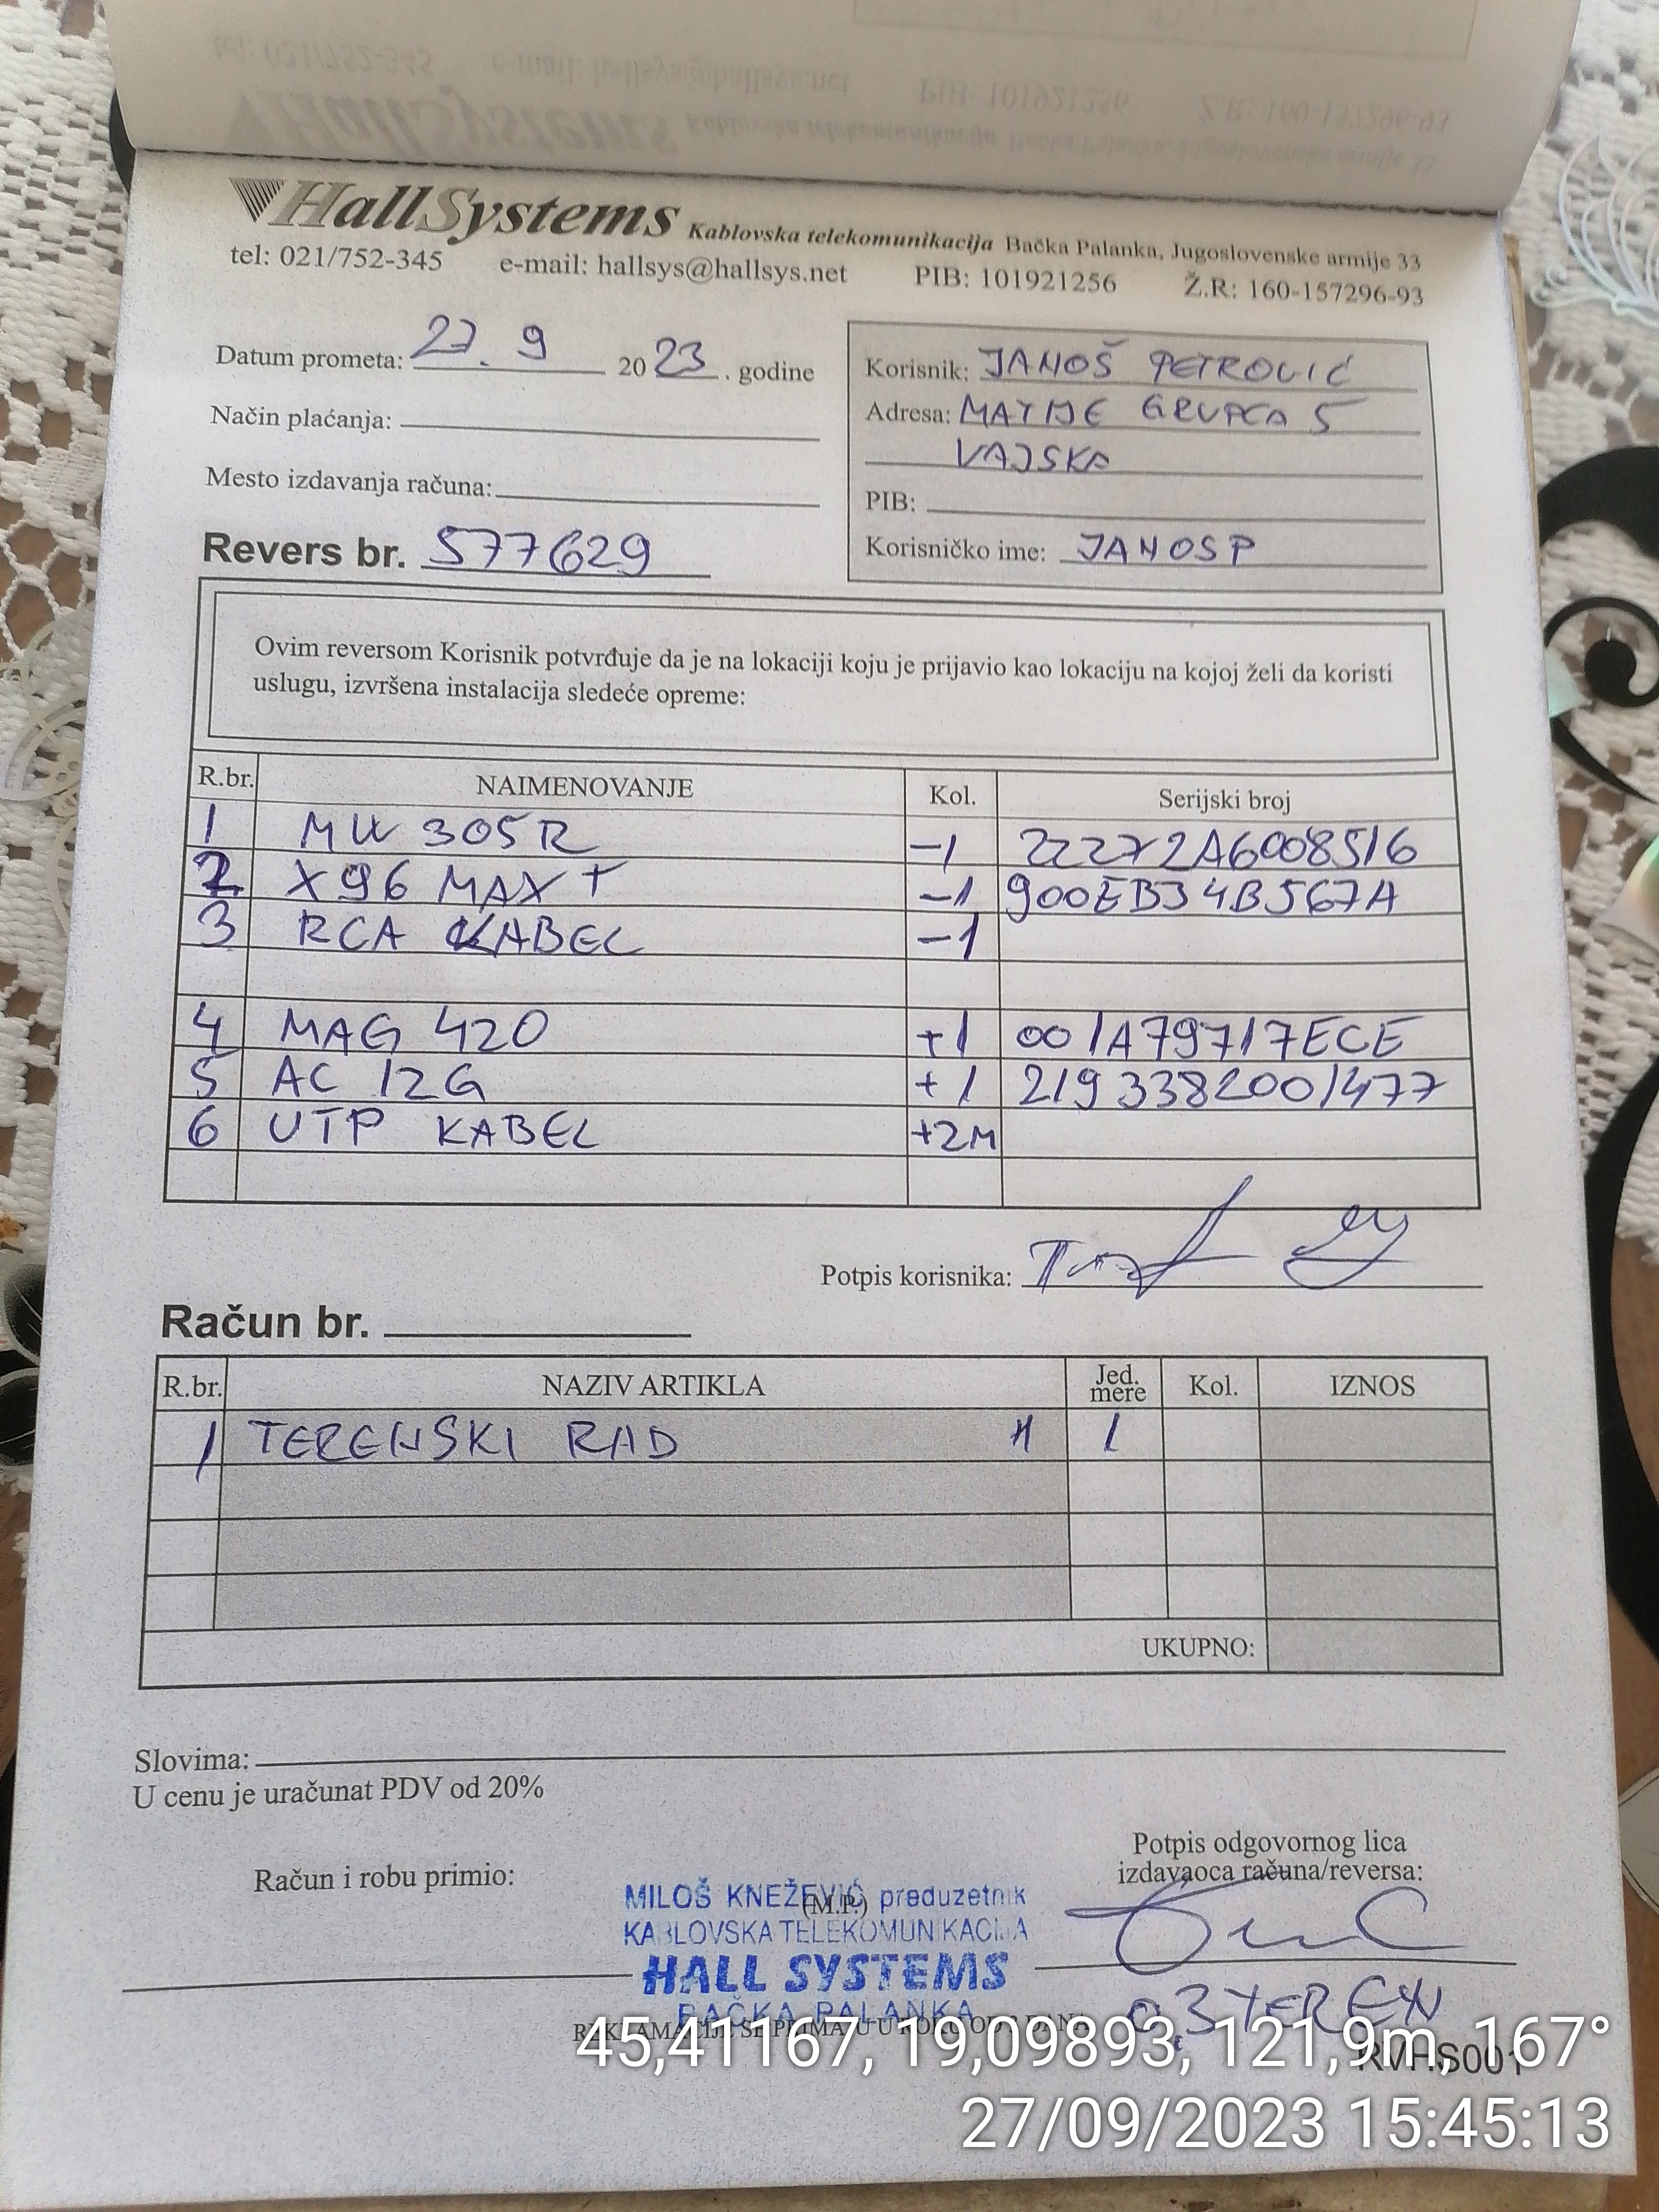 HallSystems Kablovska telekomunikacija Bačka Palanka, Jugoslovenske armije 33
tel: 021/752-345 e-mail: hallsys@hallsys.net PIB: 101921256 Ž.R: 160-157296-93
Datum prometa: 27. 9 2023. godine
Način plaćanja:
Mesto izdavanja računa:
Revers br. 577629
Korisnik: JANOŠ PETROVIĆ
Adresa: MATIJE GRUPCA 5
VAJSKA
PIB:
Korisničko ime: JANOSP
Ovim reversom Korisnik potvrđuje da je na lokaciji koju je prijavio kao lokaciju na kojoj želi da koristi
uslugu, izvršena instalacija sledeće opreme:
R.br. NAIMENOVANJE Kol. Serijski broj
1 MW 305R -1 22272A6008516
2 X96 MAX+ -1 900EB34B567A
3 RCA KABEL -1
4 MAG 420 +1 001A79717ECE
5 AC 12G +1 2193382001477
6 UTP KABEL +2M
Potpis korisnika:
Račun br.
R.br. NAZIV ARTIKLA Jed. mere Kol. IZNOS
1 TERENSKI RAD H 1
UKUPNO:
Slovima:
U cenu je uračunat PDV od 20%
Račun i robu primio:
(M.P.)
Potpis odgovornog lica
izdavaoca računa/reversa:
MILOŠ KNEŽEVIĆ preduzetnik
KABLOVSKA TELEKOMUNIKACIJA
HALL SYSTEMS
BAČKA PALANKA
45,41167, 19,09893, 121,9m, 167°
RVHS001
27/09/2023 15:45:13